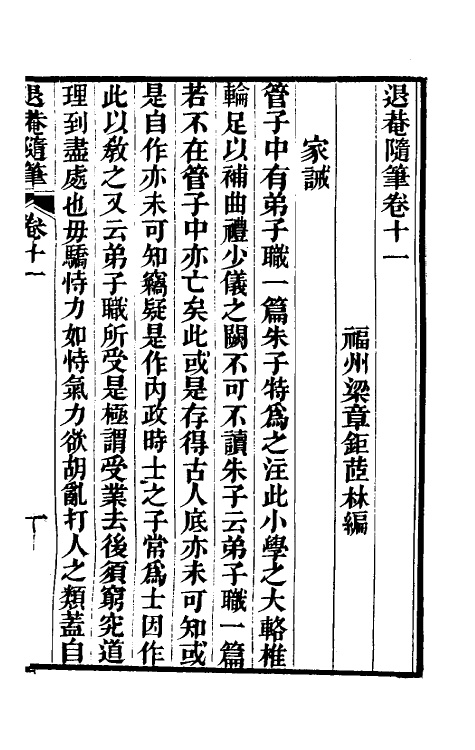 退菴隨筆卷十一
福州梁章鉅茝林編
家誡
管子中有弟子職一篇朱子特爲之注此小學之大輅椎
輪足以補曲禮少儀之闕不可不讀朱子云弟子職一篇
若不在管子中亦亡矣此或是存得古人底亦未可知或
是自作亦未可知竊疑是作內政時士之子常爲士因作
此以敎之又云弟子職所受是極謂受業去後須窮究道
理到盡處也毋驕恃力如恃氣力欲胡亂打人之類蓋自
退菴隨筆 卷十一 一